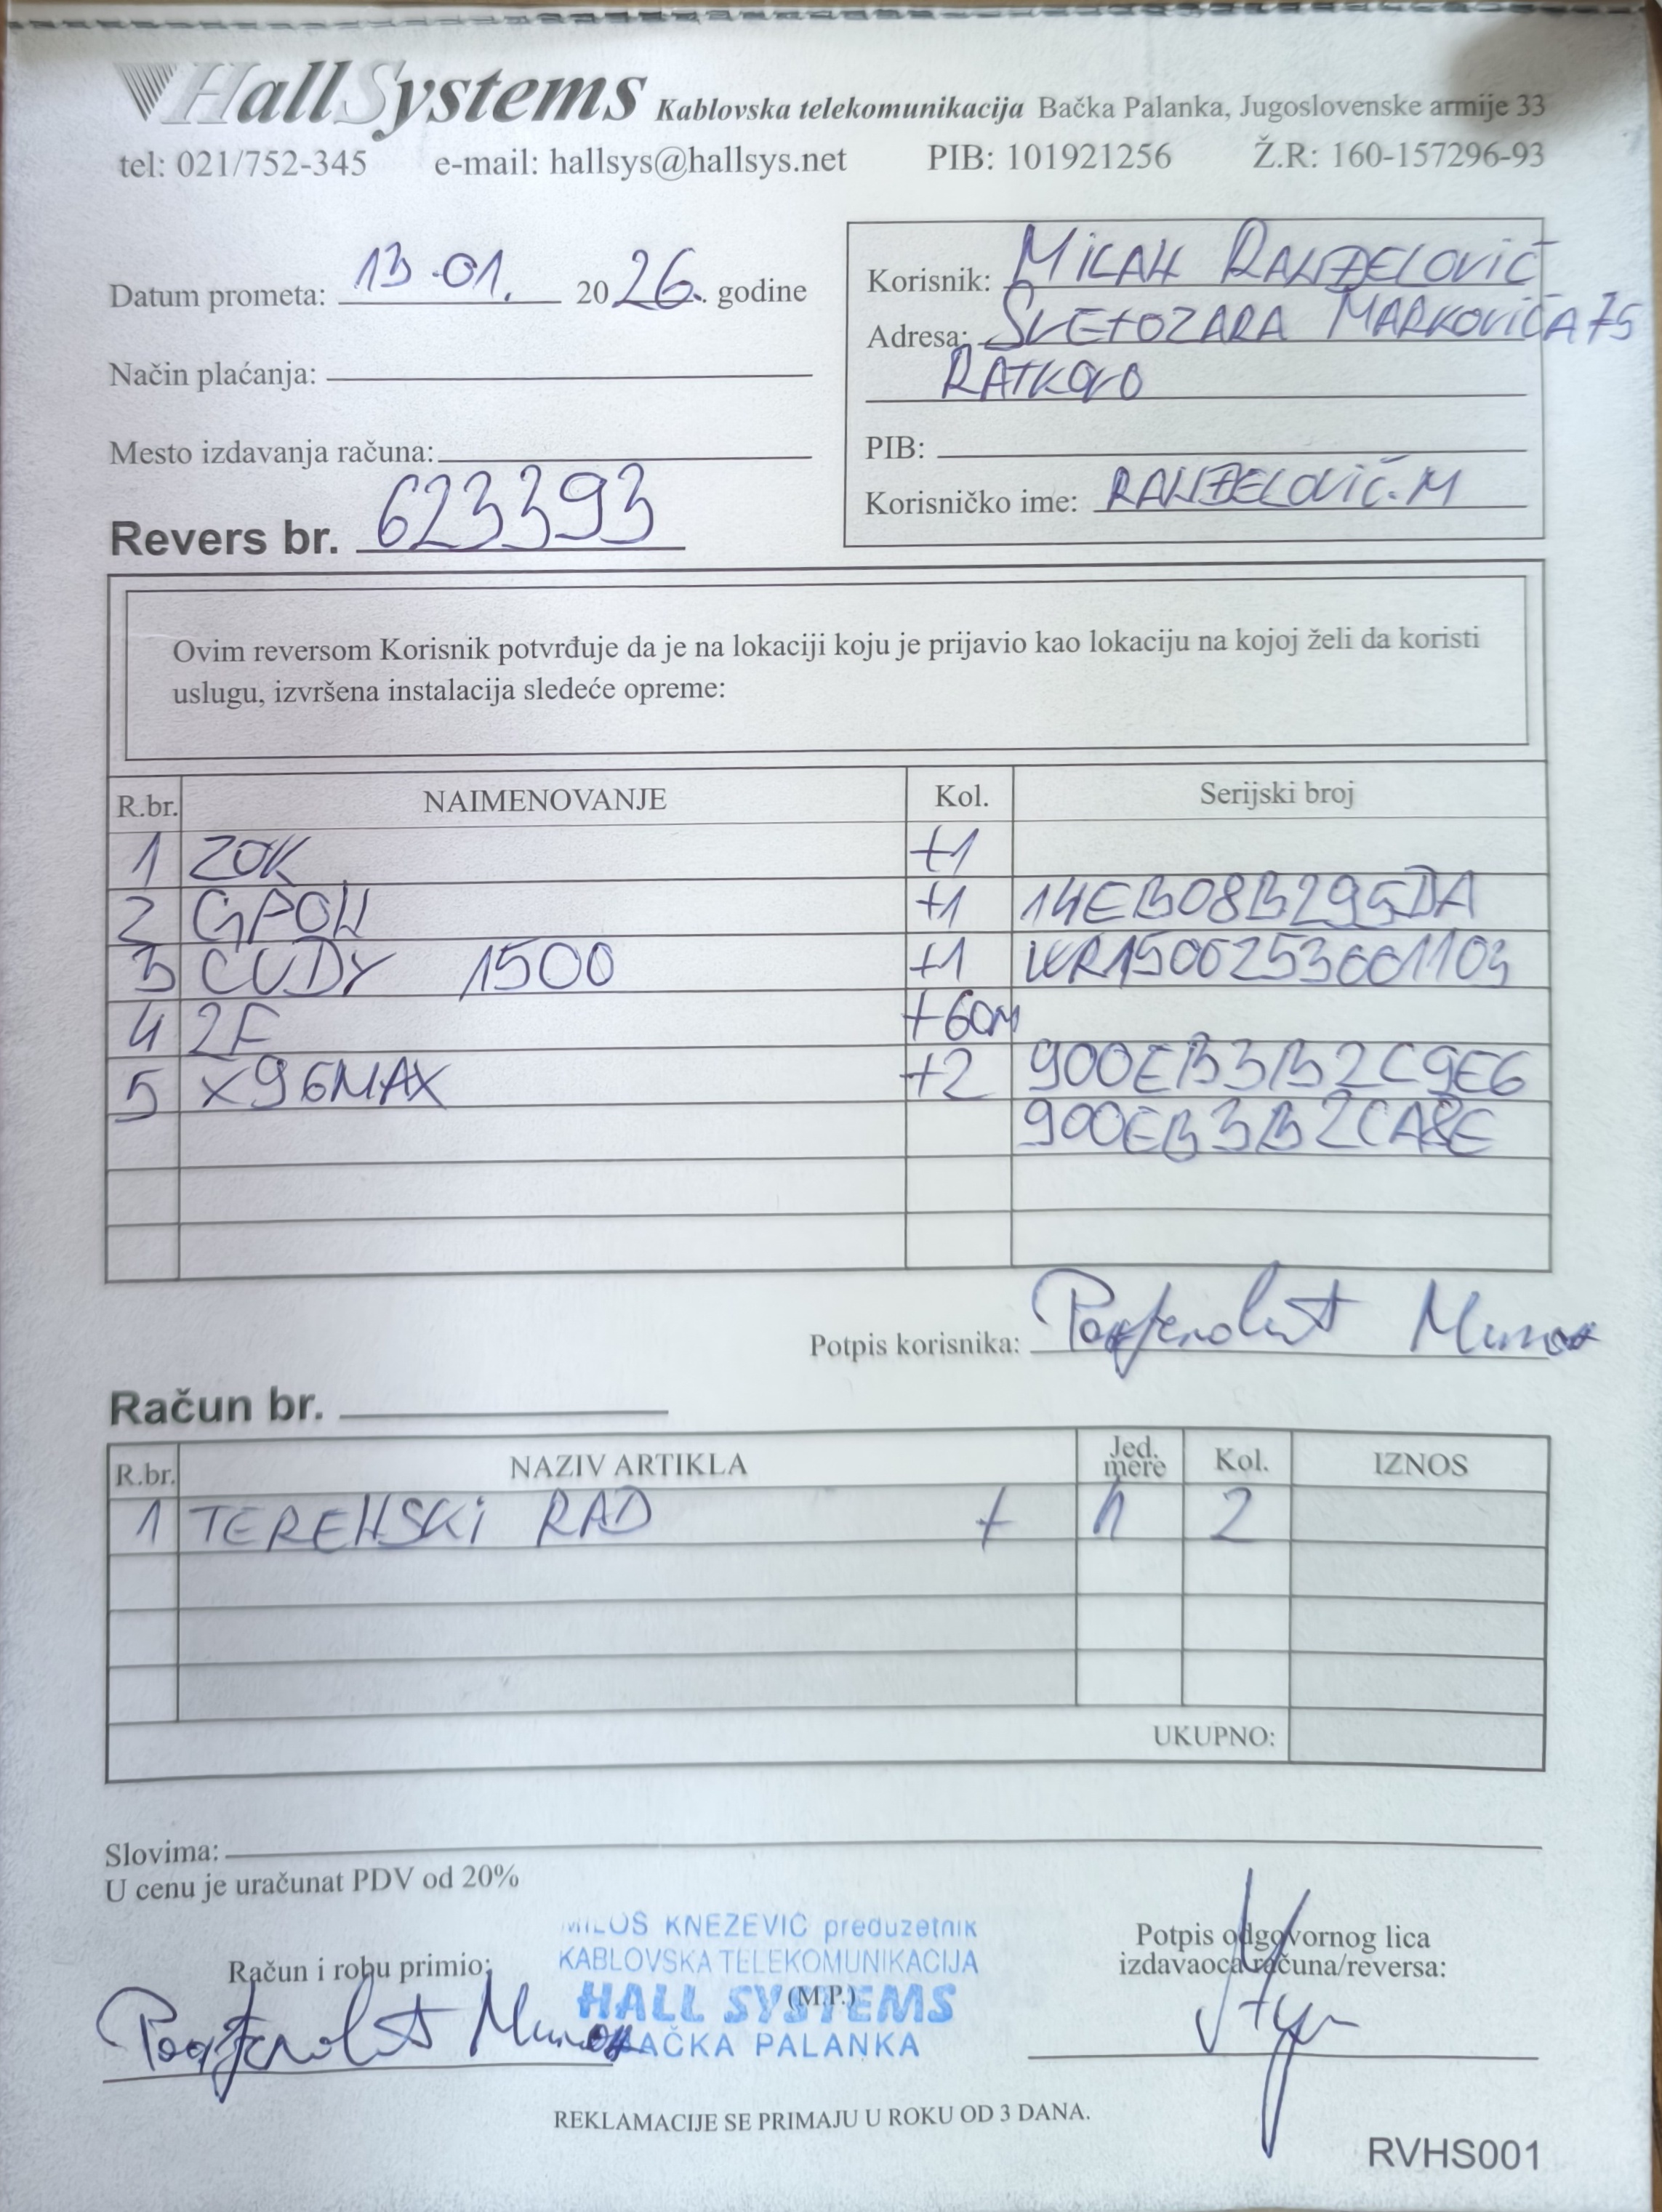 HallSystems Kablovska telekomunikacija Bačka Palanka, Jugoslovenske armije 33
tel: 021/752-345 e-mail: hallsys@hallsys.net PIB: 101921256 Ž.R: 160-157296-93
Datum prometa: 13.01. 2026. godine
Način plaćanja:
Mesto izdavanja računa:
Revers br. 623393
Korisnik: MILAN RANĐELOVIĆ
Adresa: SVETOZARA MARKOVIĆA 75
RATKOVO
PIB:
Korisničko ime: RANĐELOVIĆ.M
Ovim reversom Korisnik potvrđuje da je na lokaciji koju je prijavio kao lokaciju na kojoj želi da koristi
uslugu, izvršena instalacija sledeće opreme:
R.br. NAIMENOVANJE Kol. Serijski broj
1 ZOK +1
2 GPON +1 14EB08B295DA
3 CUDY 1500 +1 WR1500253001103
4 2F +60M
5 X96MAX +2 900EB3B2C9E6
900EB3B2CA8E
Potpis korisnika:
Račun br.
R.br. NAZIV ARTIKLA Jed. mere Kol. IZNOS
1 TERENSKI RAD + h 2
UKUPNO:
Slovima:
U cenu je uračunat PDV od 20%
Račun i robu primio:
MILOŠ KNEŽEVIĆ preduzetnik
KABLOVSKA TELEKOMUNIKACIJA
HALL SYSTEMS
(M.P.)
BAČKA PALANKA
Potpis odgovornog lica
izdavaoca računa/reversa:
REKLAMACIJE SE PRIMAJU U ROKU OD 3 DANA.
RVHS001